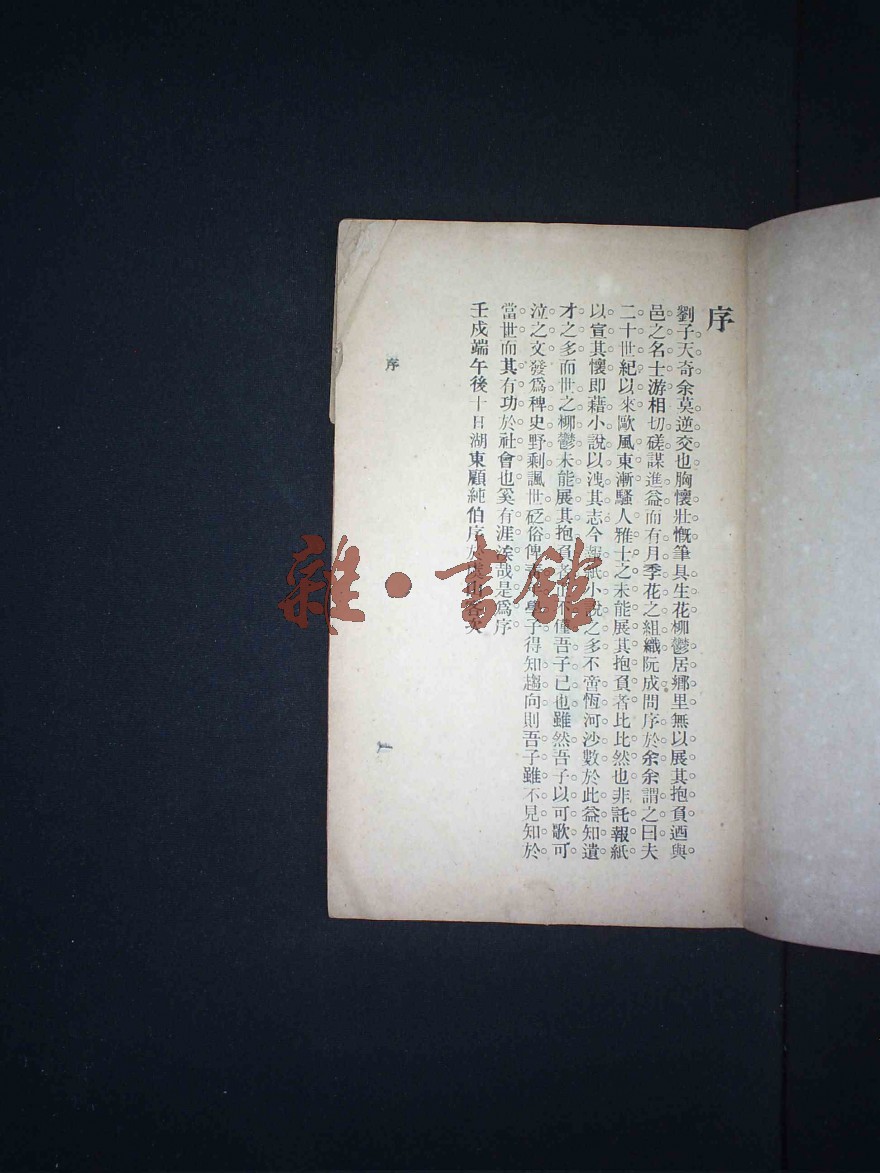 序
劉子天奇余莫逆交也胸懷壯慨筆具生花柳鬱居鄉里無以展其抱負迺與
邑之名士游相切磋謀進益而有月季花之組織阮成問序於余余謂之曰夫
二十世紀以來歐風東漸騷人雅士之未能展其抱負者比比然也非託報紙
以宣其懷即藉小說以洩其志今報紙小說之多不啻恆河沙數於此益知遺
才之多而世之柳鬱未能展其抱負者不僅吾子已也雖然吾子以可歌可
泣之文發爲稗史野剩諷世砭俗俾學子得知趨向則吾子雖不見知於
當世而其有功於社會也奚有涯涘哉是爲序
壬戍端午後十日湖東顧純伯序於山
序
一
雜·書館